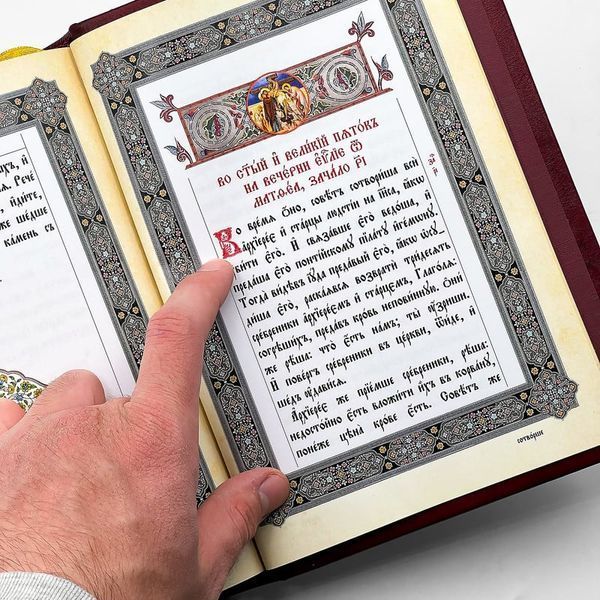 ихъ, и
я. Рече
йдите,
же шедше
камень съ
во ст҃ы́й и҆ вели́кїй пѧто́къ
на вече́рни є҆ѵⷢ҇лїе ѿ
матѳе́а, зача́ло рі
Во вре́мѧ ѻ҆́но, совѣ́тъ сотвори́ша всѝ
а҆рхїере́є и҆ ста́рцы людсті́и на і҆и҃са, ꙗ҆́кѡ
ᲂу҆би́ти є҆го̀. И҆ свѧза́вше є҆го̀ ведо́ша, и҆
преда́ша є҆го̀ понті́йскомꙋ пїла́тꙋ и҆ге́мѡнꙋ.
Тогда̀ ви́дѣвъ і҆ꙋ́да преда́вый є҆го̀, ꙗ҆́кѡ ѡ҆сꙋ-
ди́ша є҆го̀, раска́ѧвсѧ возвратѝ три́десѧть
сре́бреники а҆рхїере́ємъ и҆ ста́рцємъ, Глаго́лѧ:
согрѣши́хъ, преда́въ кро́вь непови́ннꙋю. Ѻ҆ни́
же рѣ́ша: что̀ є҆́сть на́мъ; ты̀ ᲂу҆́зриши.
И҆ пове́ргъ сре́бреники въ це́ркви, ѿи́де, и҆
ше́дъ ᲂу҆дави́сѧ.
А҆рхїере́є же прїе́мше сре́бреники, рѣ́ша:
недосто́йно є҆́сть вложи́ти и҆́хъ въ корва́нꙋ,
поне́же цѣна̀ кро́ве є҆́сть. Совѣ́тъ же
сотво́рше